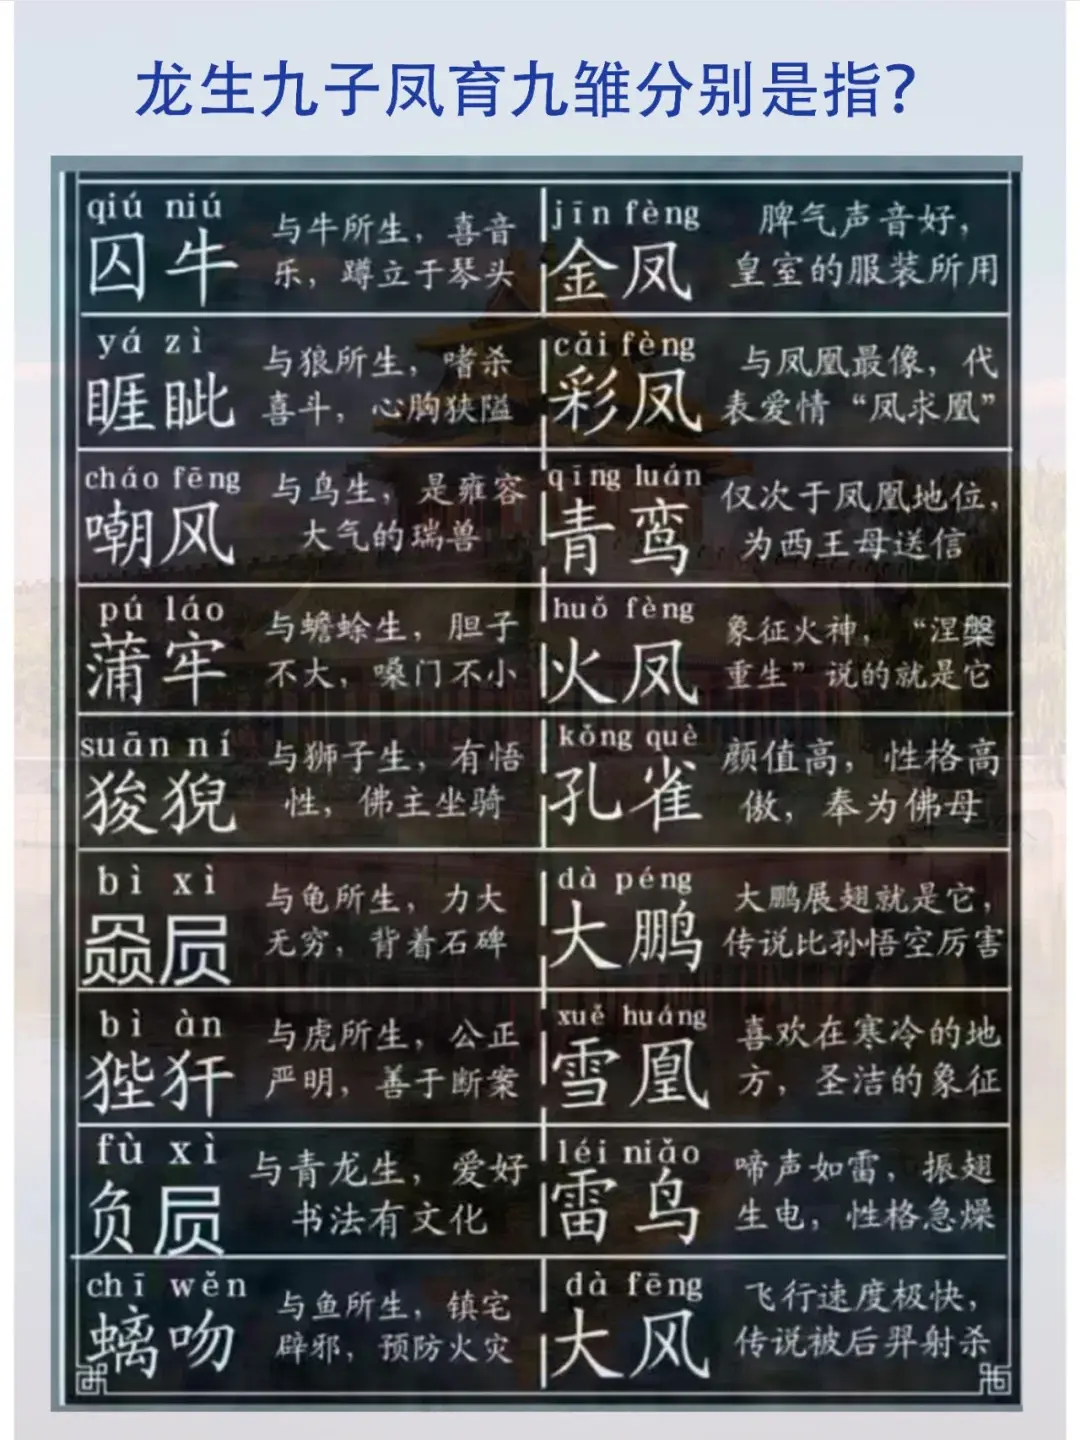 龙生九子凤育九雏分别是指?
qiú niú
囚牛
与牛所生，喜音
乐，蹲立于琴头
jīn fèng
金凤
脾气声音好，
皇室的服装所用
yá zì
睚眦
与狼所生，嗜杀
喜斗，心胸狭隘
cǎi fèng
彩凤
与凤凰最像，代
表爱情“凤求凰”
cháo fēng
嘲风
与鸟生，是雍容
大气的瑞兽
qīng luán
青鸾
仅次于凤凰地位，
为西王母送信
pú láo
蒲牢
与蟾蜍生，胆子
不大，嗓门不小
huǒ fèng
火凤
象征火神，“涅槃
重生”说的就是它
suān ní
狻猊
与狮子生，有悟
性，佛主坐骑
kǒng què
孔雀
颜值高，性格高
傲，奉为佛母
bì xì
赑屃
与龟所生，力大
无穷，背着石碑
dà péng
大鹏
大鹏展翅就是它，
传说比孙悟空厉害
bì àn
狴犴
与虎所生，公正
严明，善于断案
xuě huáng
雪凰
喜欢在寒冷的地
方，圣洁的象征
fù xì
负屃
与青龙生，爱好
书法有文化
léi niǎo
雷鸟
啼声如雷，振翅
生电，性格急燥
chī wěn
螭吻
与鱼所生，镇宅
辟邪，预防火灾
dà fēng
大风
飞行速度极快，
传说被后羿射杀